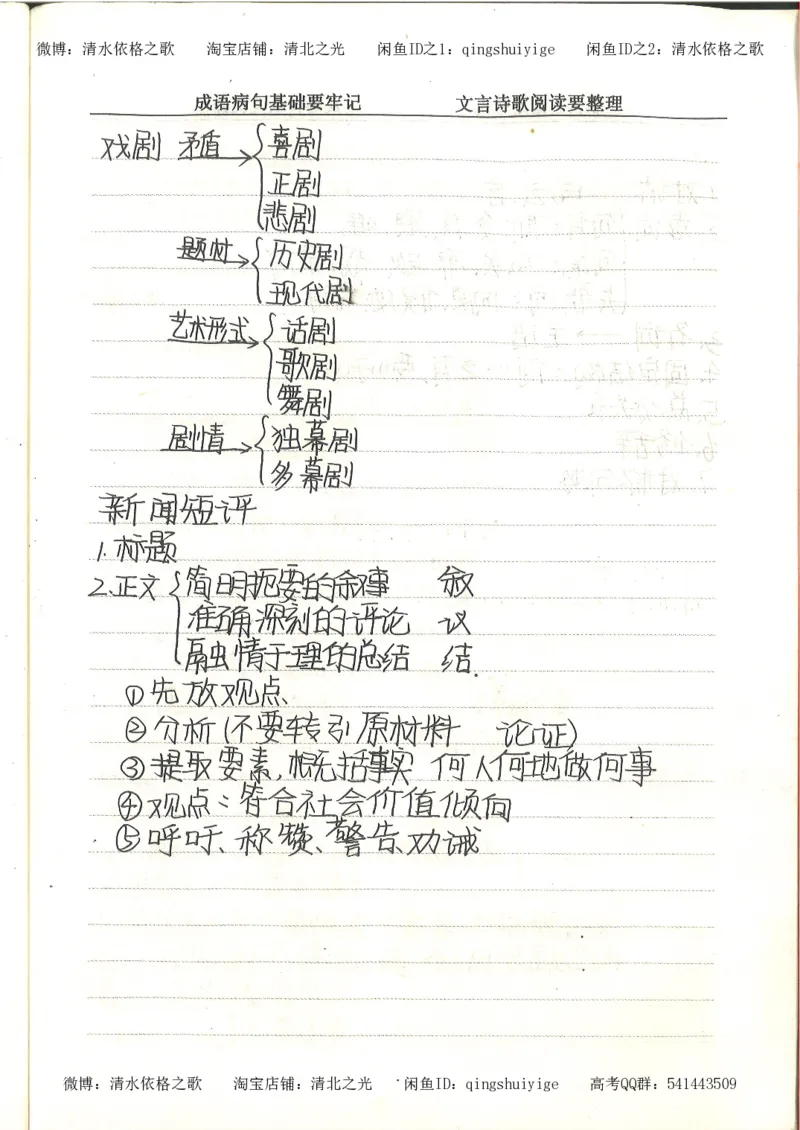 微博：清水依格之歌 淘宝店铺：清北之光 闲鱼ID之1：qingshuiyige 闲鱼ID之2：清水依格之歌
成语病句基础要牢记 文言诗歌阅读要整理
戏剧 矛盾→{喜剧
正剧
悲剧
题材→{历史剧
现代剧
艺术形式→{话剧
歌剧
舞剧
剧情→{独幕剧
多幕剧
新闻短评
1.标题
2.正文{简明扼要的叙事 叙
准确深刻的评论 议
融情于理的总结 结.
①先放观点、
②分析(不要转引原材料 论证)
③提取要素,概括事实 何人何地做何事
④观点:符合社会价值倾向
⑤呼吁、称赞、警告、劝诫
微博：清水依格之歌 淘宝店铺：清北之光 闲鱼ID：qingshuiyige 高考QQ群：541443509